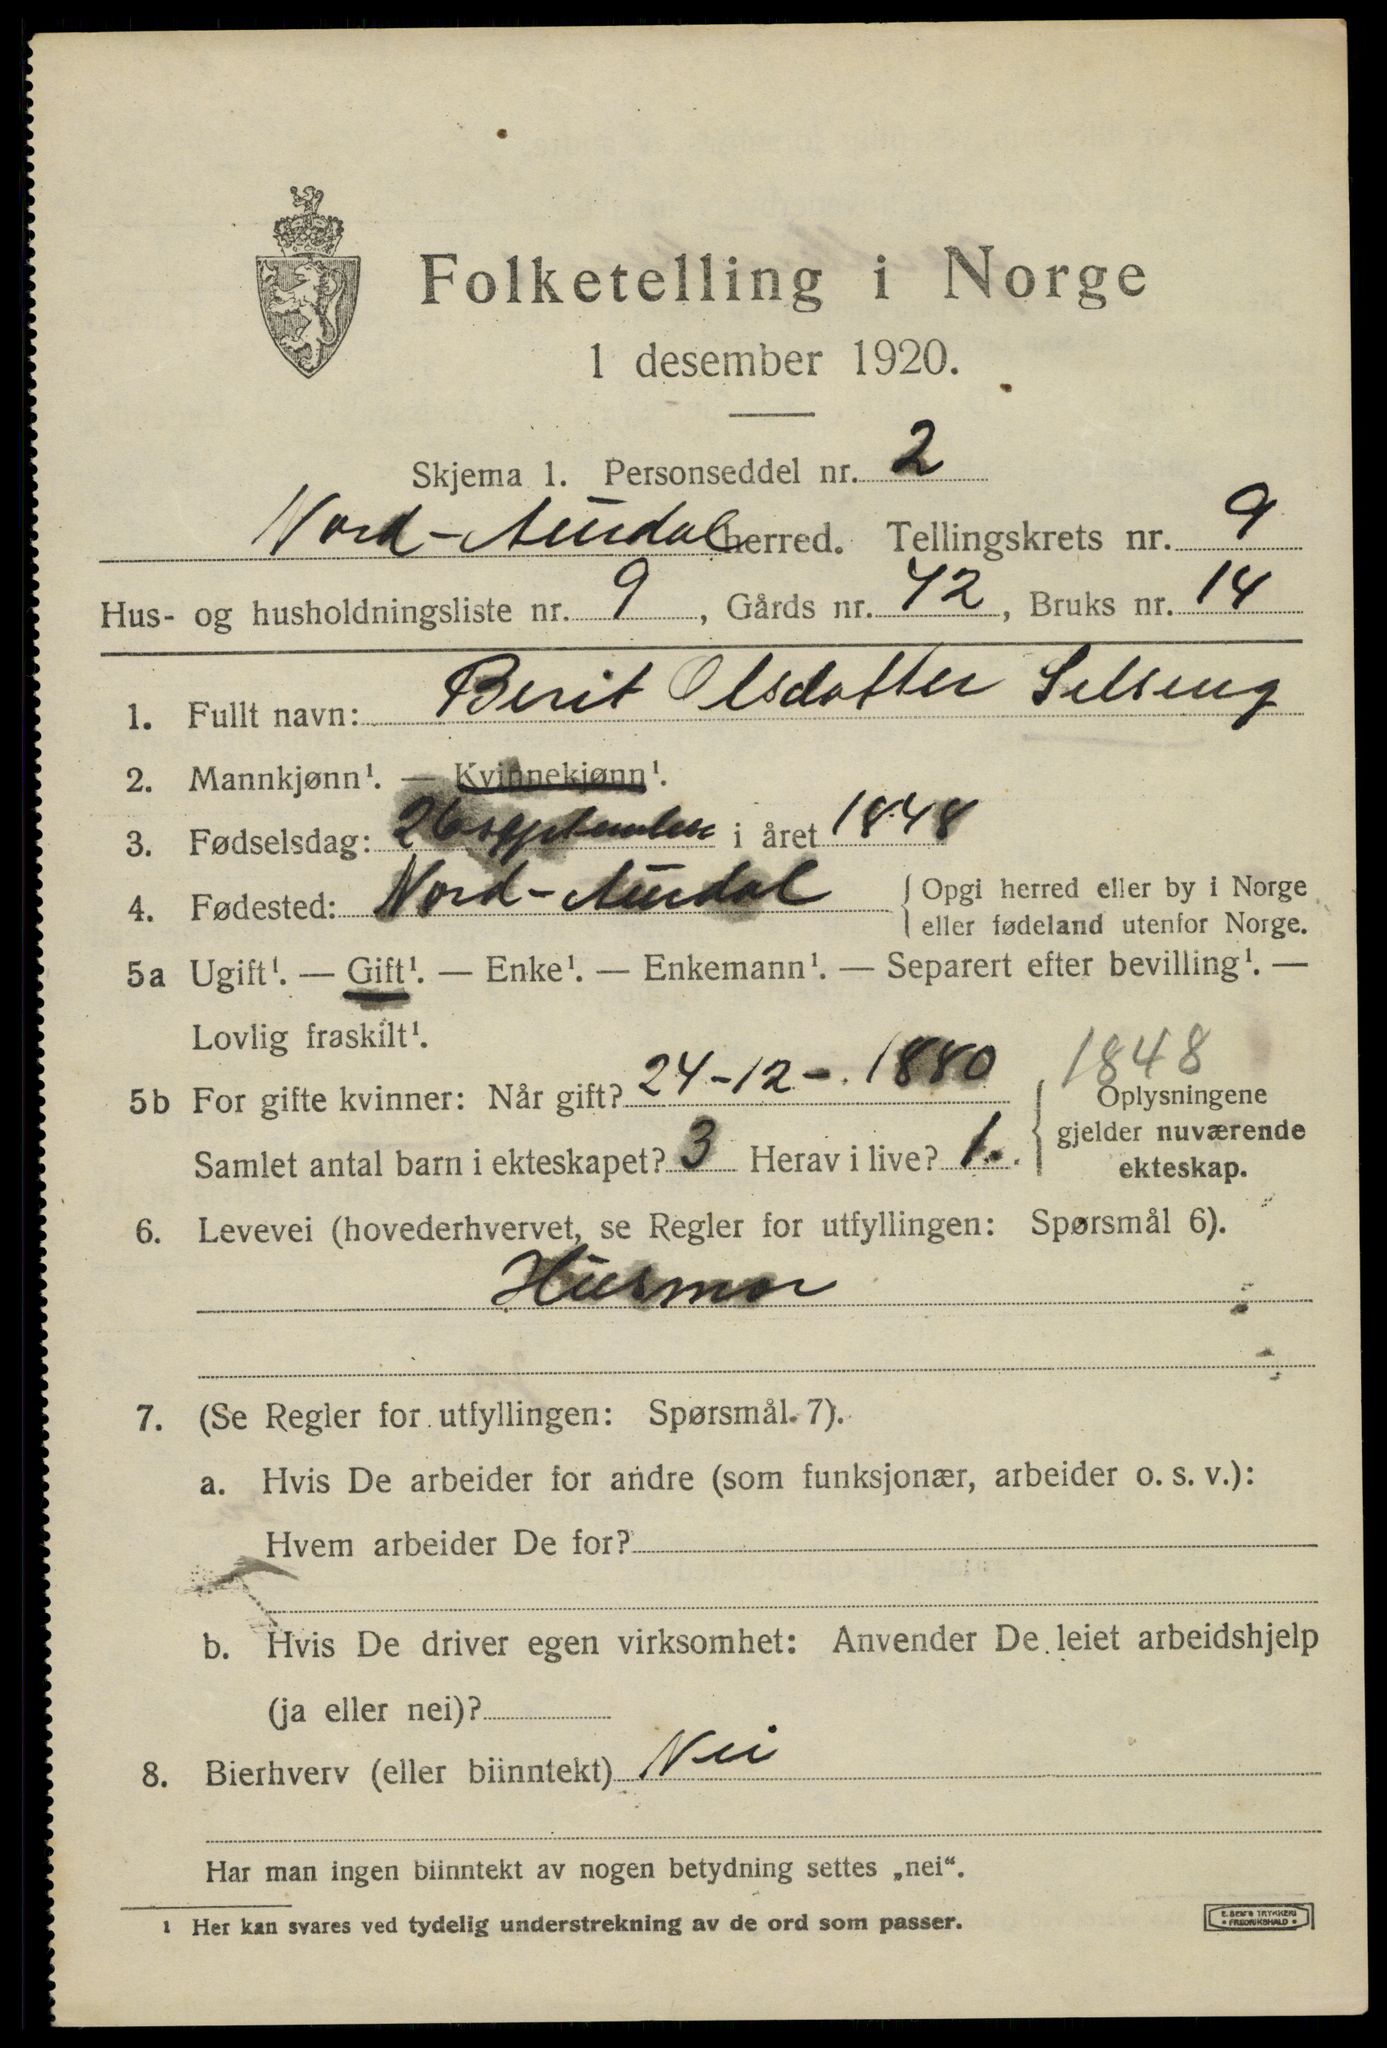 Folketelling i Norge
1 desember 1920.
Skjema 1. Personseddel nr. 2
Nord-Aurdal herred. Tellingskrets nr. 9
Hus- og husholdningsliste nr. 9, Gårds nr. 42, Bruks nr. 14
1. Fullt navn: Berit Olsdatter Selseng
2. Mannkjønn¹. — Kvinnekjønn¹.
3. Fødselsdag: 26 september i året 1848
4. Fødested: Nord-Aurdal { Opgi herred eller by i Norge
eller fødeland utenfor Norge.
5a Ugift¹. — Gift¹. — Enke¹. — Enkemann¹. — Separert efter bevilling¹. —
Lovlig fraskilt¹.
1848
5b For gifte kvinner: Når gift? 24-12-1880 { Oplysningene
gjelder nuværende
Samlet antal barn i ekteskapet? 3 Herav i live? 1.
ekteskap.
6. Levevei (hovederhvervet, se Regler for utfyllingen: Spørsmål 6).
Husmor
7. (Se Regler for utfyllingen: Spørsmål 7).
a. Hvis De arbeider for andre (som funksjonær, arbeider o. s. v.):
Hvem arbeider De for?
b. Hvis De driver egen virksomhet: Anvender De leiet arbeidshjelp
(ja eller nei)?
8. Bierhverv (eller biinntekt) Nei
Har man ingen biinntekt av nogen betydning settes „nei“.
¹ Her kan svares ved tydelig understrekning av de ord som passer.
E. SEM'S TRYKKERI
FREDRIKSHALD